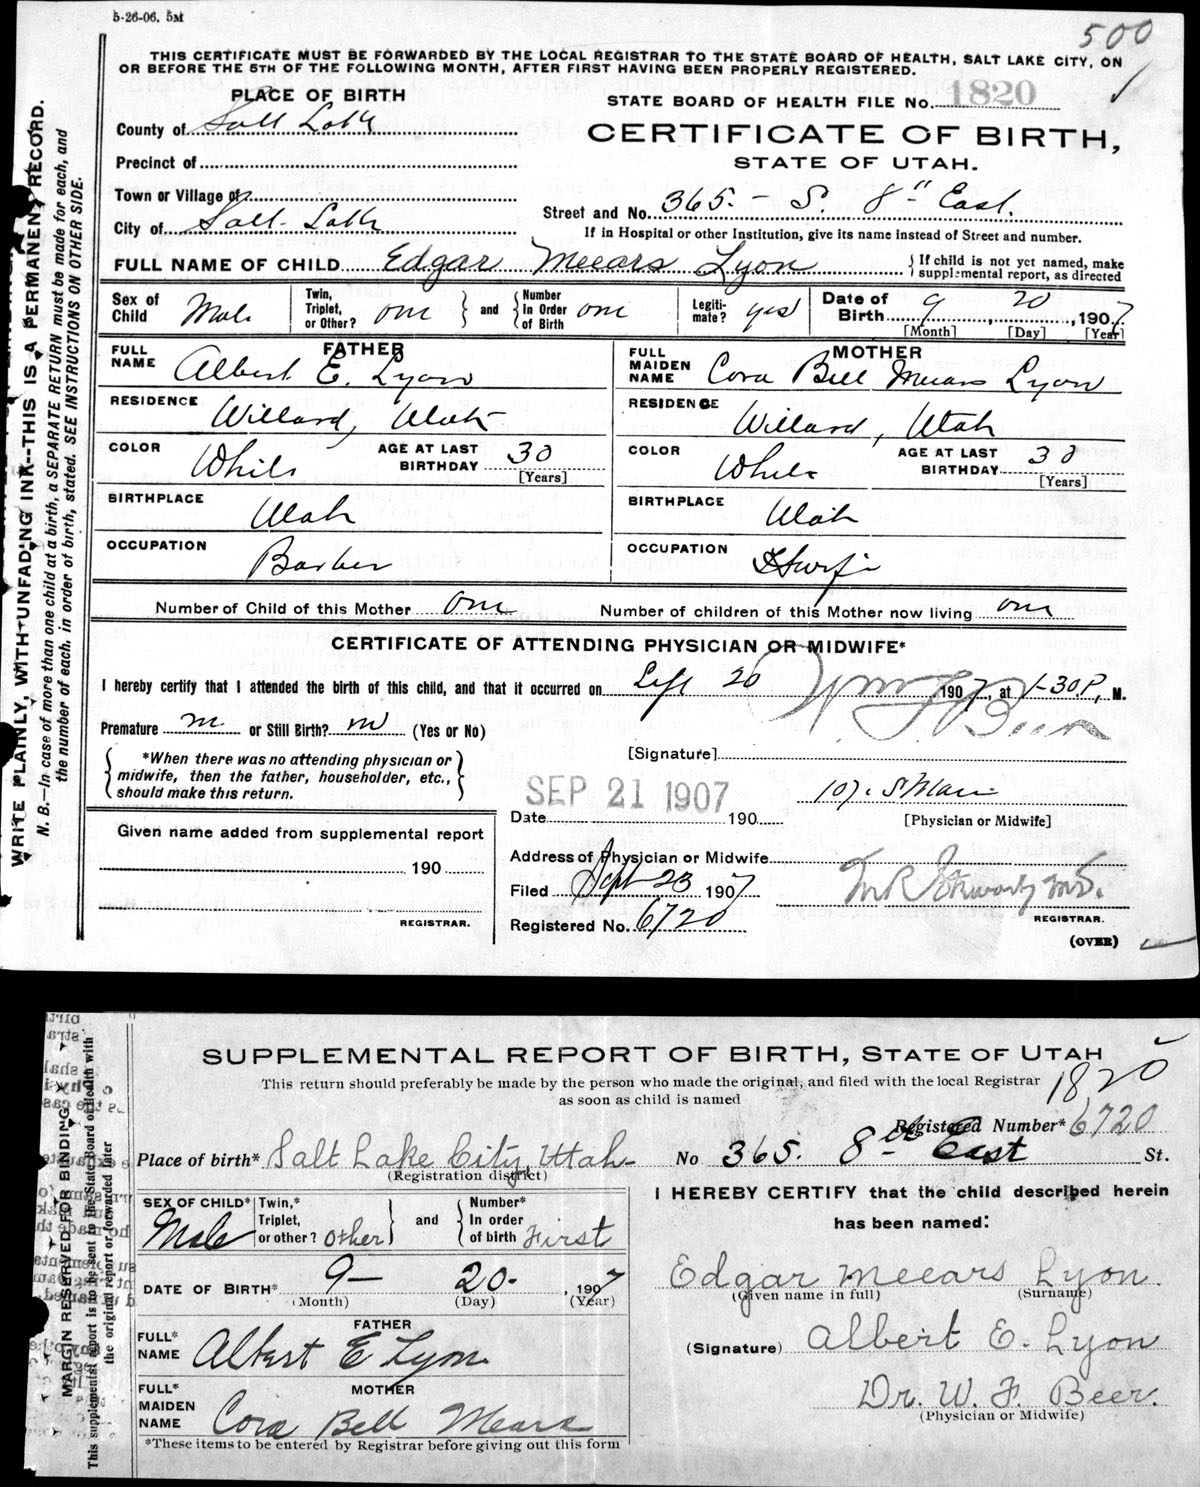 5-26-06. 5M
500
THIS CERTIFICATE MUST BE FORWARDED BY THE LOCAL REGISTRAR TO THE STATE BOARD OF HEALTH, SALT LAKE CITY, ON
OR BEFORE THE 5TH OF THE FOLLOWING MONTH, AFTER FIRST HAVING BEEN PROPERLY REGISTERED.
PLACE OF BIRTH
STATE BOARD OF HEALTH FILE No. 1820
County of Salt Lake
CERTIFICATE OF BIRTH,
Precinct of
STATE OF UTAH.
Town or Village of
Street and No. 365. - S. 8" East.
City of Salt Lake
If in Hospital or other Institution, give its name instead of Street and number.
FULL NAME OF CHILD Edgar Meears Lyon
If child is not yet named, make supplemental report, as directed
Sex of Child Male
Twin, Triplet, or Other? one and Number In Order of Birth one
Legitimate? yes
Date of Birth 9 20, 1907
[Month] [Day] [Year]
FATHER
FULL NAME Albert E. Lyon
RESIDENCE Willard, Utah
COLOR White AGE AT LAST BIRTHDAY 30
[Years]
BIRTHPLACE Utah
OCCUPATION Barber
MOTHER
FULL MAIDEN NAME Cora Bell Mears Lyon
RESIDENCE Willard, Utah
COLOR White AGE AT LAST BIRTHDAY 30
[Years]
BIRTHPLACE Utah
OCCUPATION HWife
Number of Child of this Mother one Number of children of this Mother now living one
CERTIFICATE OF ATTENDING PHYSICIAN OR MIDWIFE*
I hereby certify that I attended the birth of this child, and that it occurred on Sept 20 1907, at 1-30 P, M.
Premature no or Still Birth? no (Yes or No)
Wm F Beer
[Signature]
*When there was no attending physician or
midwife, then the father, householder, etc.,
should make this return.
SEP 21 1907
107. S Main
Date 190
[Physician or Midwife]
Given name added from supplemental report
190
REGISTRAR.
Address of Physician or Midwife
Filed Sept 23 1907
M.D.
REGISTRAR.
Registered No. 6720
(OVER)
WRITE PLAINLY, WITH UNFADING INK--THIS IS A PERMANENT RECORD.
N. B.—In case of more than one child at a birth, a SEPARATE RETURN must be made for each, and
the number of each, in order of birth, stated. SEE INSTRUCTIONS ON OTHER SIDE.
SUPPLEMENTAL REPORT OF BIRTH, STATE OF UTAH
This return should preferably be made by the person who made the original, and filed with the local Registrar
as soon as child is named
1820
Registered Number* 6720
Place of birth* Salt Lake City, Utah No 365. 8th East St.
(Registration district)
SEX OF CHILD* Male
Twin,* Triplet, or other? Other and Number* In order of birth First
DATE OF BIRTH* 9- 20-, 1907
(Month) (Day) (Year)
FATHER
FULL* NAME Albert E Lyon
MOTHER
FULL* MAIDEN NAME Cora Bell Mears
*These items to be entered by Registrar before giving out this form
I HEREBY CERTIFY that the child described herein
has been named:
Edgar Meears Lyon.
(Given name in full) (Surname)
(Signature) Albert E. Lyon
Dr. W. F. Beer.
(Physician or Midwife)
MARGIN RESERVED FOR BINDING
This supplemental report is to be sent to the State Board of Health with
the original report or forwarded later